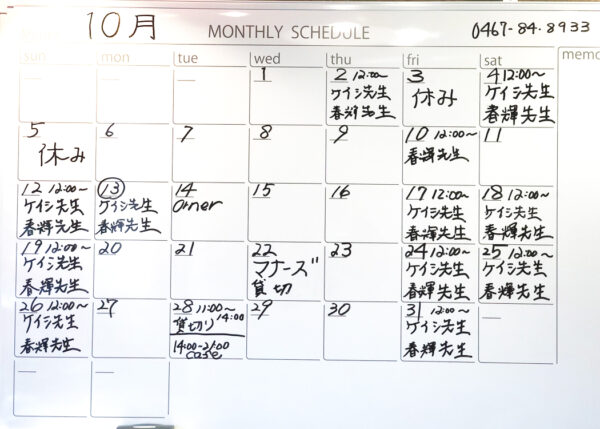 10月 MONTHLY SCHEDULE 0467-84-8933
sun mon tue wed thu fri sat memo
1
2 12:00~
ケイシ先生
春輝先生
3
休み
4 12:00~
ケイシ先生
春輝先生
5
休み
6
7
8
9
10 12:00~
春輝先生
11
12 12:00~
ケイシ先生
春輝先生
13
ケイシ先生
春輝先生
14
15
16
17 12:00~
ケイシ先生
春輝先生
18 12:00~
ケイシ先生
春輝先生
19 12:00~
ケイシ先生
春輝先生
20
21
22
マナーズ
貸切
23
24 12:00~
ケイシ先生
春輝先生
25 12:00~
ケイシ先生
春輝先生
26 12:00~
ケイシ先生
春輝先生
27
28 11:00~
14:00
貸切り
14:00-21:00
cafe
29
30
31 12:00~
ケイシ先生
春輝先生